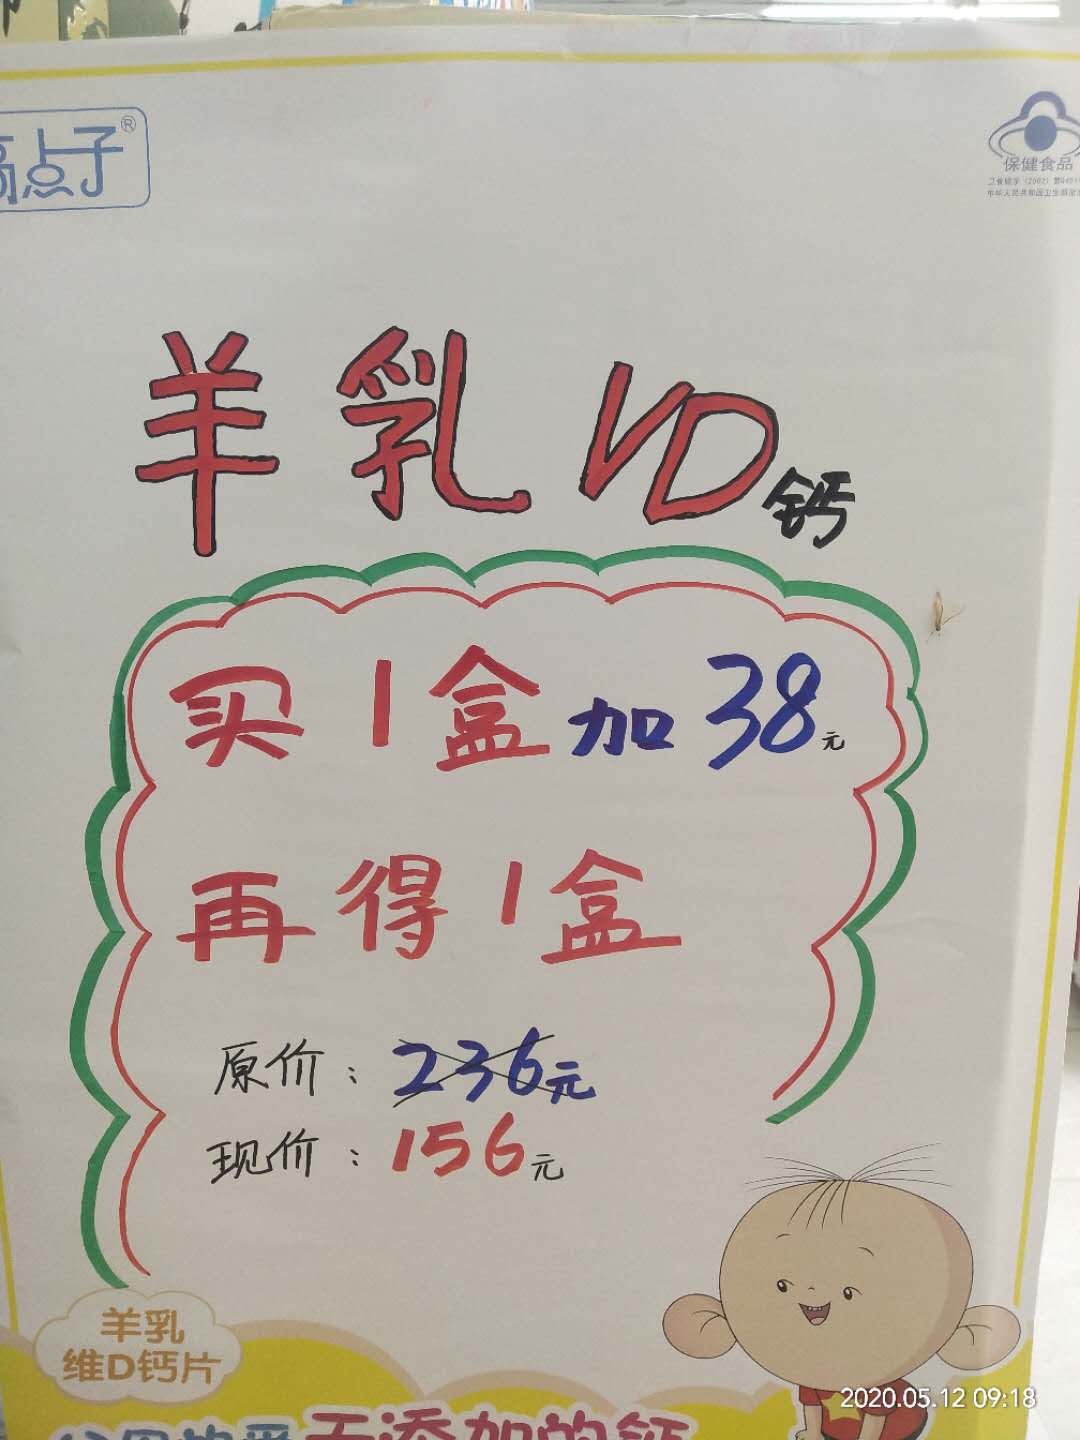 高点子®
保健食品
羊乳VD钙
买1盒加38元
再得1盒
原价：236元
现价：156元
羊乳
维D钙片
无添加的钙
2020.05.12 09:18